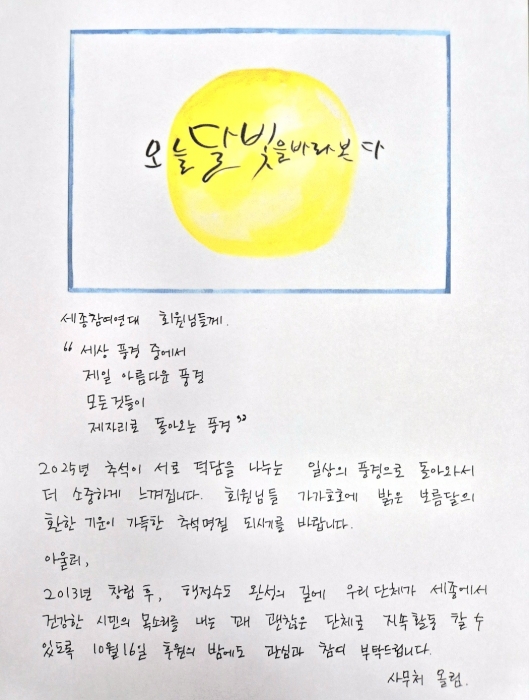 오늘달빛을바라본다
세종참여연대 회원님들께.
“ 세상 풍경 중에서
제일 아름다운 풍경
모든것들이
제자리로 돌아오는 풍경 ”
2025년 추석이 서로 덕담을 나누는 일상의 풍경으로 돌아와서
더 소중하게 느껴집니다. 회원님들 가가호호에 밝은 보름달의
환한 기운이 가득한 추석명절 되시기를 바랍니다.
아울러,
2013년 창립 후, 행정수도 완성의 길에 우리단체가 세종에서
건강한 시민의 목소리를 내는 꽤 괜찮은 단체로 지속활동 할 수
있도록 10월 16일 후원의 밤에도 관심과 참여 부탁드립니다.
사무처 올림.